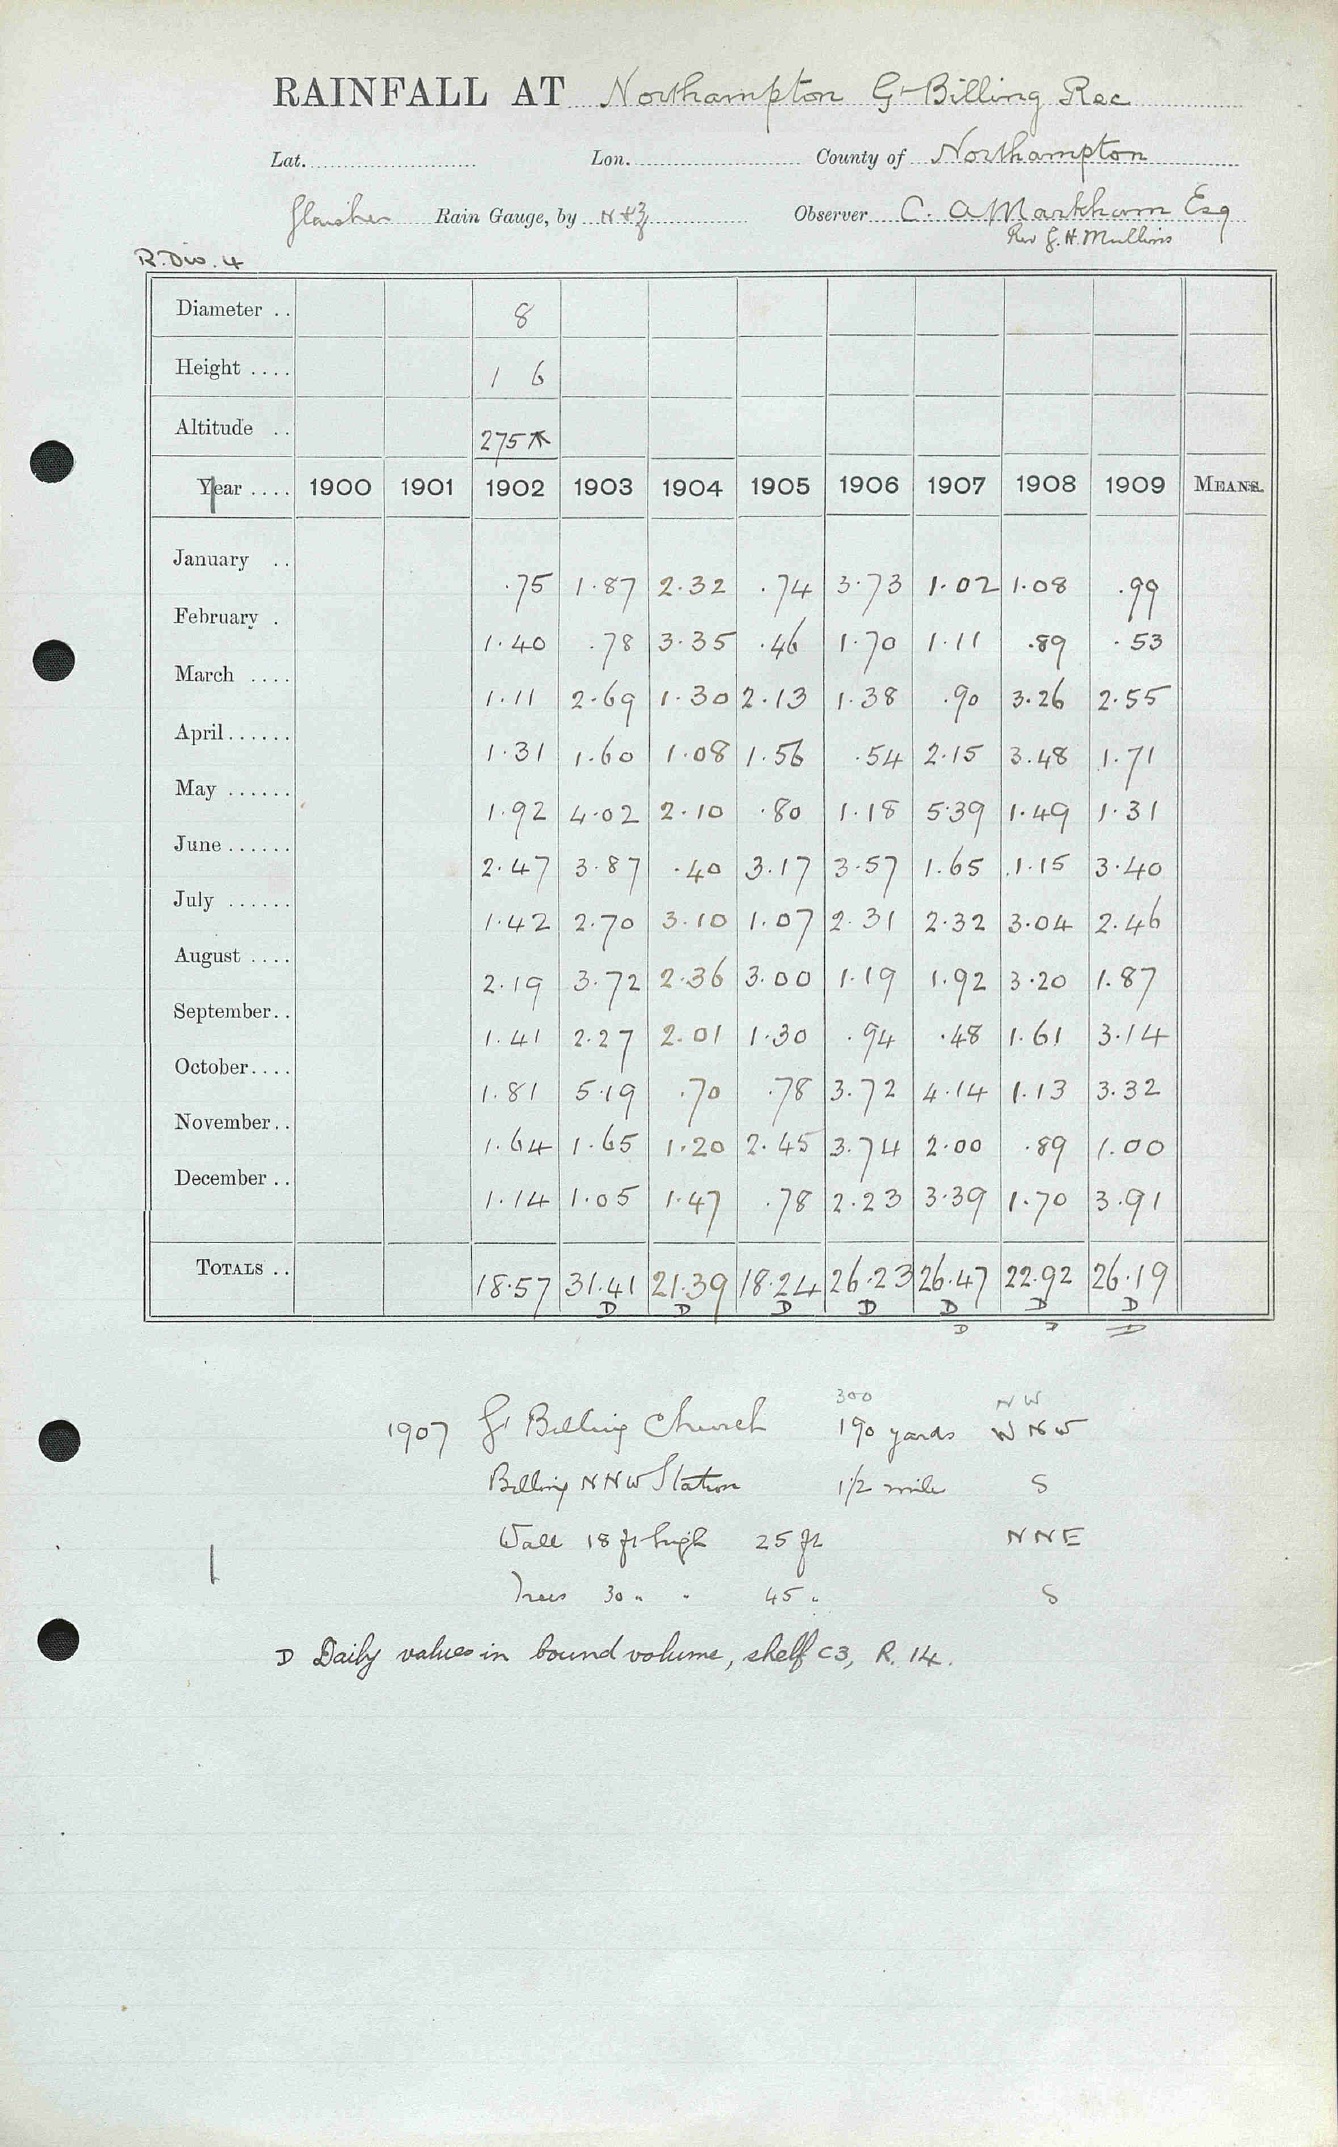 RAINFALL AT Northampton Gt Billing Rec
Lat. Lon. County of Northampton
Glaisher Rain Gauge, by N & Z Observer C. A Markham Esq
Rev G. H. Mullins
R. Div. 4
Diameter .. 8
Height .... 1 6
Altitude .. 275
Year .... 1900 1901 1902 1903 1904 1905 1906 1907 1908 1909 MEANS.
January .. .75 1.87 2.32 .74 3.73 1.02 1.08 .99
February . 1.40 .78 3.35 .46 1.70 1.11 .89 .53
March .... 1.11 2.69 1.30 2.13 1.38 .90 3.26 2.55
April...... 1.31 1.60 1.08 1.56 .54 2.15 3.48 1.71
May ...... 1.92 4.02 2.10 .80 1.18 5.39 1.49 1.31
June ...... 2.47 3.87 .40 3.17 3.57 1.65 1.15 3.40
July ...... 1.42 2.70 3.10 1.07 2.31 2.32 3.04 2.46
August .... 2.19 3.72 2.36 3.00 1.19 1.92 3.20 1.87
September.. 1.41 2.27 2.01 1.30 .94 .48 1.61 3.14
October.... 1.81 5.19 .70 .78 3.72 4.14 1.13 3.32
November.. 1.64 1.65 1.20 2.45 3.74 2.00 .89 1.00
December .. 1.14 1.05 1.47 .78 2.23 3.39 1.70 3.91
TOTALS .. 18.57 31.41 21.39 18.24 26.23 26.47 22.92 26.19
D D D D D D D
D D D
300 NW
1907 Gt Billing Church 190 yards WNW
Billing NNW Station 1/2 mile S
Wall 18 ft high 25 ft NNE
Trees 30 " " 45 " S
D Daily values in bound volume, shelf C3, R. 14.